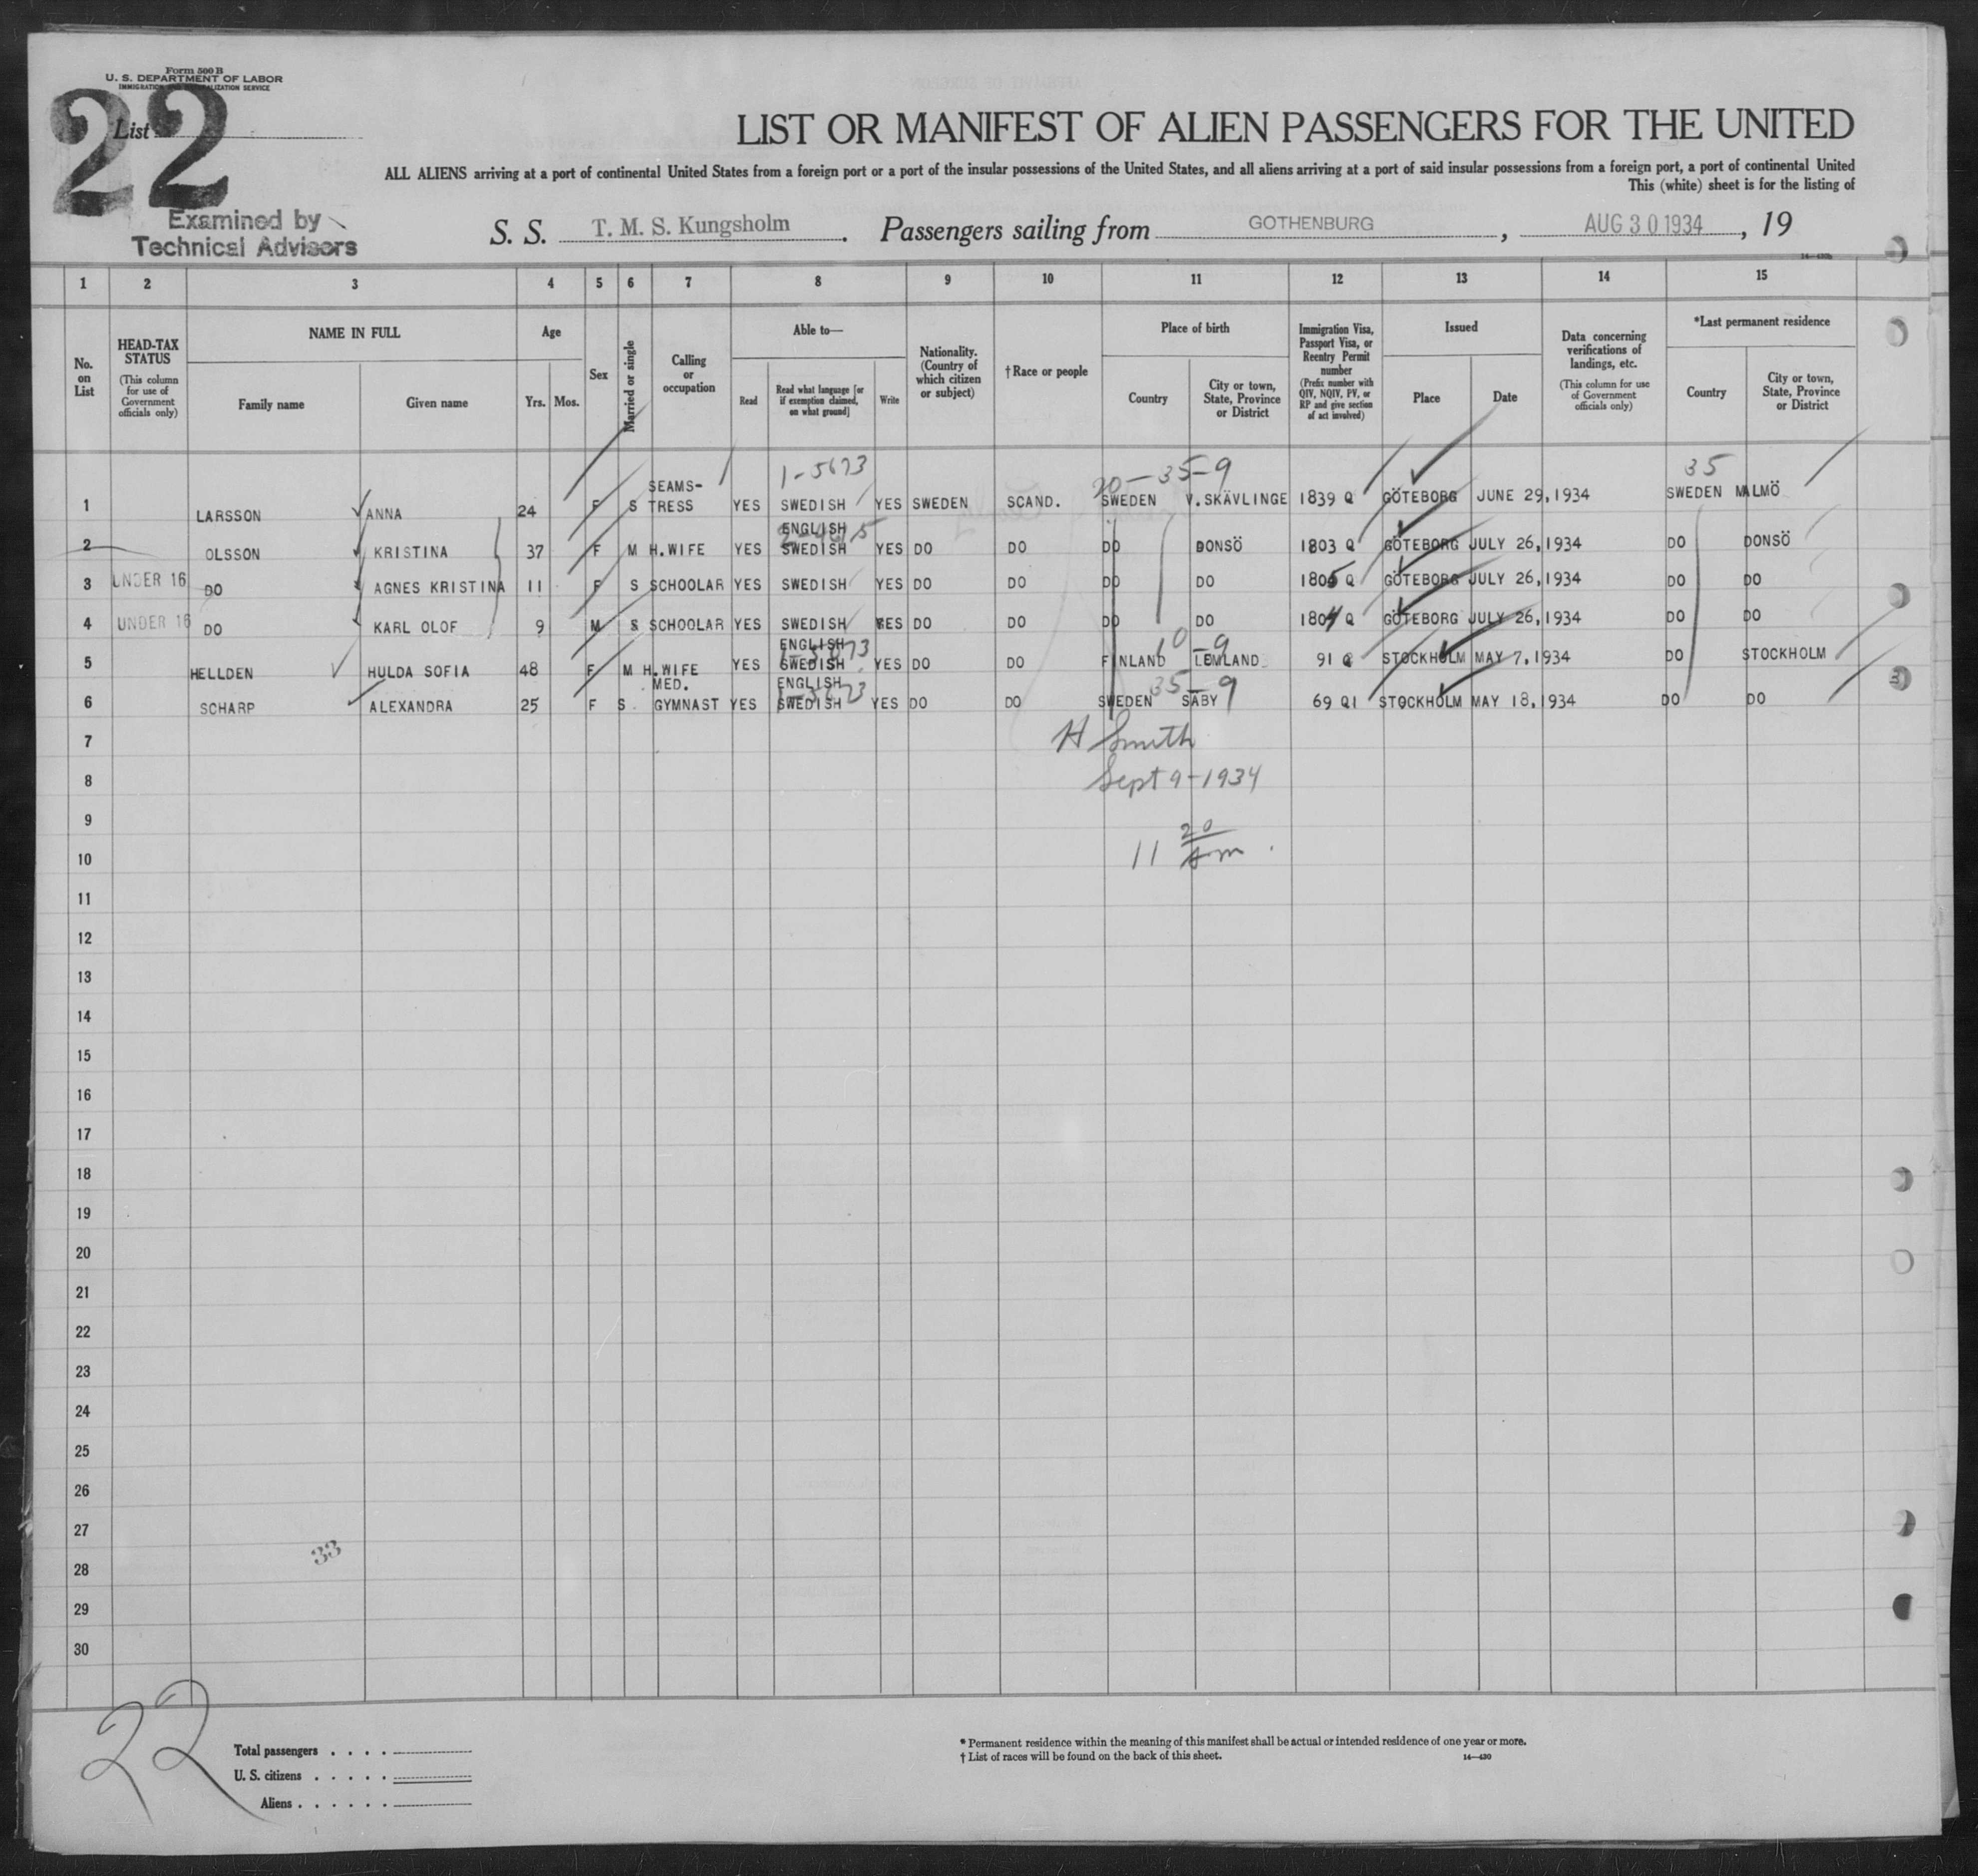 Form 500 B
U. S. DEPARTMENT OF LABOR
IMMIGRATION AND NATURALIZATION SERVICE
List
22
Examined by
Technical Advisers
LIST OR MANIFEST OF ALIEN PASSENGERS FOR THE UNITED
ALL ALIENS arriving at a port of continental United States from a foreign port or a port of the insular possessions of the United States, and all aliens arriving at a port of said insular possessions from a foreign port, a port of continental United
This (white) sheet is for the listing of
S. S. T. M. S. Kungsholm. Passengers sailing from GOTHENBURG, AUG 30 1934, 19
1 2 3 4 5 6 7 8 9 10 11 12 13 14 15
No. on List
HEAD-TAX STATUS
(This column for use of Government officials only)
NAME IN FULL
Family name
Given name
Age
Yrs. Mos.
Sex
Married or single
Calling or occupation
Able to—
Read
Read what language [or if exemption claimed, on what ground]
Write
Nationality. (Country of which citizen or subject)
† Race or people
Place of birth
Country
City or town, State, Province or District
Immigration Visa, Passport Visa, or Reentry Permit number
(Prefix number with QIV, NQIV, PV, or RP and give section of act involved)
Issued
Place
Date
Data concerning verifications of landings, etc.
(This column for use of Government officials only)
*Last permanent residence
Country
City or town, State, Province or District
1-5673 20-35-9 35
1 LARSSON ANNA 24 F S SEAMS-TRESS YES SWEDISH YES SWEDEN SCAND. SWEDEN V.SKÄVLINGE 1839 Q GÖTEBORG JUNE 29,1934 SWEDEN MALMÖ
2 OLSSON KRISTINA 37 F M H.WIFE YES ENGLISH SWEDISH YES DO DO DO DONSÖ 1803 Q GÖTEBORG JULY 26,1934 DO DONSÖ
3 UNDER 16 DO AGNES KRISTINA 11 F S SCHOOLAR YES SWEDISH YES DO DO DO DO 1805 Q GÖTEBORG JULY 26,1934 DO DO
4 UNDER 16 DO KARL OLOF 9 M S SCHOOLAR YES SWEDISH YES DO DO DO DO 1804 Q GÖTEBORG JULY 26,1934 DO DO
10 -9
5 HELLDEN HULDA SOFIA 48 F M H.WIFE YES ENGLISH SWEDISH YES DO DO FINLAND LEMLAND 91 Q STOCKHOLM MAY 7,1934 DO STOCKHOLM
35-9
6 SCHARP ALEXANDRA 25 F S MED. GYMNAST YES ENGLISH SWEDISH YES DO DO SWEDEN SÄBY 69 QI STOCKHOLM MAY 18,1934 DO DO
7 H Smith
8 Sept 9-1934
9
10 11 20 Am
11
12
13
14
15
16
17
18
19
20
21
22
23
24
25
26
27
33
28
29
30
22
Total passengers
U. S. citizens
Aliens
* Permanent residence within the meaning of this manifest shall be actual or intended residence of one year or more.
† List of races will be found on the back of this sheet.
14—430